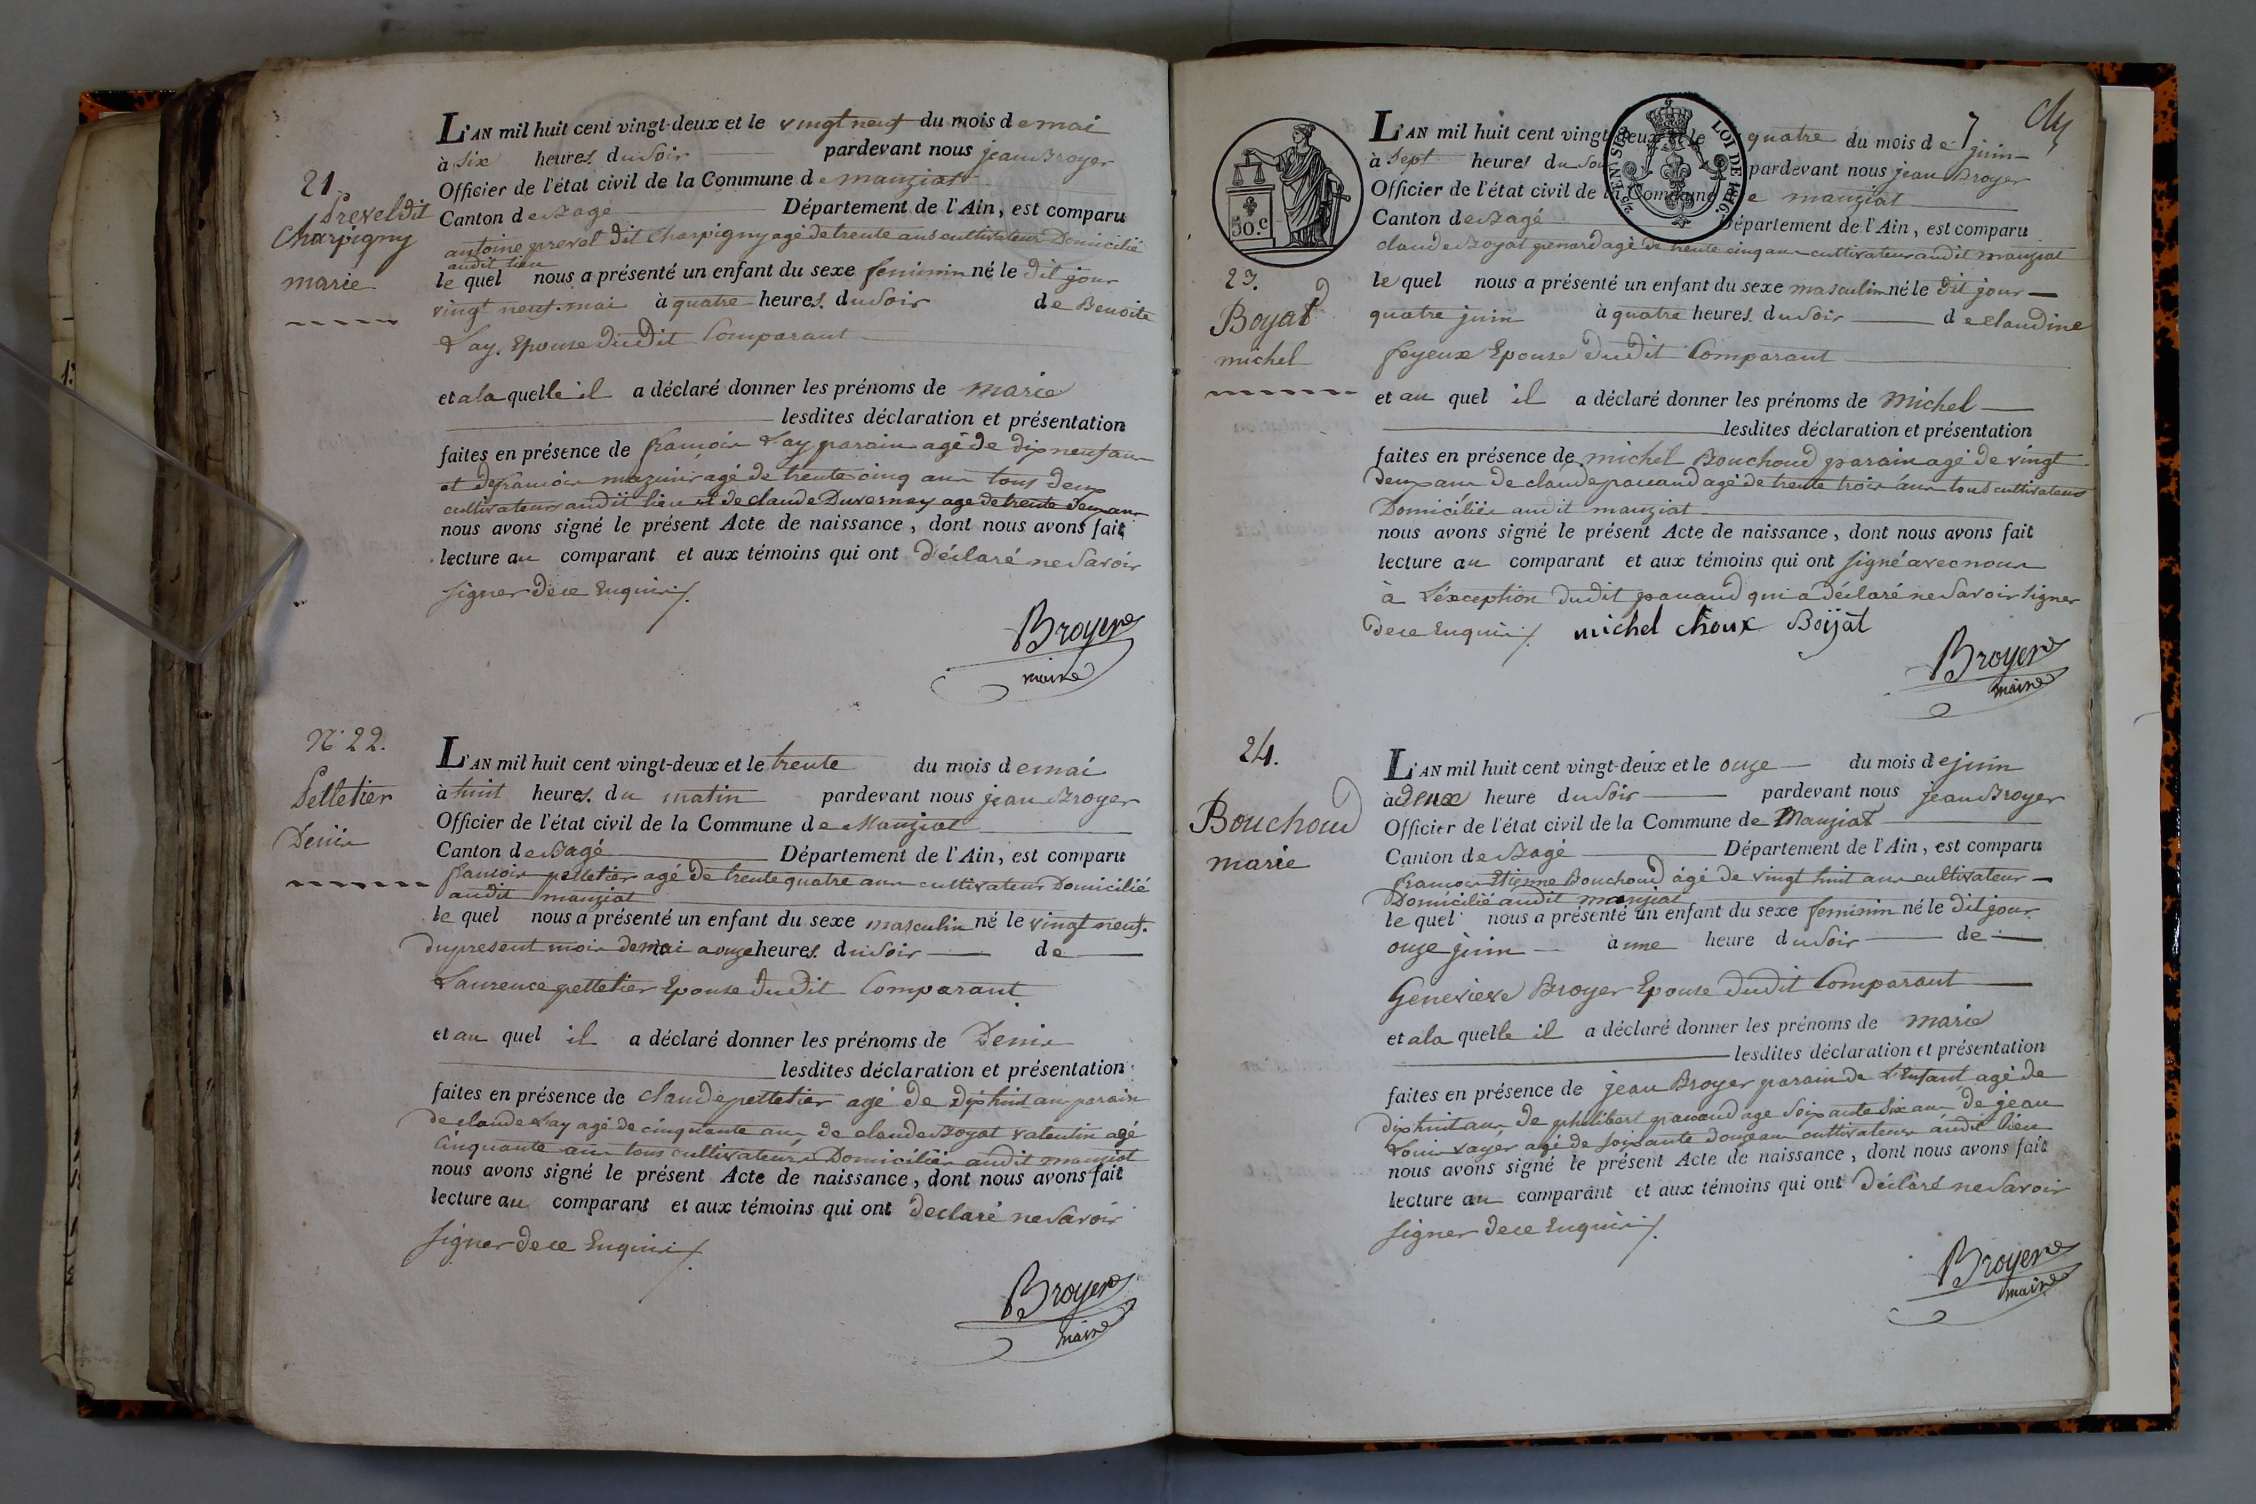 21.
Prevel dit
Charpigny
marie
L'AN mil huit cent vingt-deux et le vingt neuf du mois de mai
à six heures du soir pardevant nous jean Broyer
Officier de l'état civil de la Commune de manziat
Canton de Bagé Département de l'Ain, est comparu
antoine prevel dit Charpigny agé de trente ans cultivateur Domicilié
audit lieu
le quel nous a présenté un enfant du sexe feminin né le dit jour
vingt neuf mai à quatre heures du soir de Benoite
Lay, Epouse dudit Comparant
et a la quelle il a déclaré donner les prénoms de marie
lesdites déclaration et présentation
faites en présence de francois Lay parain agé de dix neuf ans
et de francois mazuir agé de trente cinq ans tous deux
cultivateurs audit lieu et de claude Duvernay age de trente deux ans
nous avons signé le présent Acte de naissance, dont nous avons fait
lecture au comparant et aux témoins qui ont déclaré ne savoir
signer de ce Enquis
Broyer
maire
N° 22.
Pelletier
Denis
L'AN mil huit cent vingt-deux et le trente du mois de mai
à huit heures du matin pardevant nous jean Broyer
Officier de l'état civil de la Commune de Manziat
Canton de Bagé Département de l'Ain, est comparu
francois pelletier agé de trente quatre ans cultivateur Domicilié
audit manziat
le quel nous a présenté un enfant du sexe masculin né le vingt neuf
du present mois de mai a onze heures du soir de
Laurence pelletier Epouse dudit Comparant
et au quel il a déclaré donner les prénoms de Denis
lesdites déclaration et présentation
faites en présence de claude pelletier agé de dix huit ans parain
de claude Lay agé de cinquante ans, de claude Boyat valentin agé
Cinquante ans tous cultivateurs Domiciliés audit manziat
nous avons signé le présent Acte de naissance, dont nous avons fait
lecture au comparant et aux témoins qui ont declaré ne savoir
signer de ce Enquis
Broyer
maire
50.c
2/5 EN SUS
LOI DE 1816.
23.
Boyat
michel
L'AN mil huit cent vingt-deux et le quatre du mois de juin
à sept heures du soir pardevant nous jean Broyer
Officier de l'état civil de la Commune de manziat
Canton de Bagé Département de l'Ain, est comparu
claude Boyat penard agé de trente cinq ans cultivateur audit manziat
le quel nous a présenté un enfant du sexe masculin né le dit jour
quatre juin à quatre heures du soir de claudine
feyeux Epouse dudit Comparant
et au quel il a déclaré donner les prénoms de Michel
lesdites déclaration et présentation
faites en présence de michel Bouchoud parain agé de vingt
deux ans de claude panaud agé de trente trois ans tous cultivateurs
Domiciliés audit manziat
nous avons signé le présent Acte de naissance, dont nous avons fait
lecture au comparant et aux témoins qui ont signé avec nous
à L'éxception dudit panaud qui a déclaré ne savoir signer
de ce Enquis michel choux Boyat
Broyer
maire
24.
Bouchoud
marie
L'AN mil huit cent vingt-deux et le onze du mois de juin
à deux heure du soir pardevant nous jean Broyer
Officier de l'état civil de la Commune de Manziat
Canton de Bagé Département de l'Ain, est comparu
francois Etienne Bouchoud agé de vingt huit ans cultivateur
Domicilié audit manziat
le quel nous a présenté un enfant du sexe feminin né le dit jour
onze juin à une heure du soir de
Genevieve Broyer Epouse dudit Comparant
et a la quelle il a déclaré donner les prénoms de marie
lesdites déclaration et présentation
faites en présence de jean Broyer parain de L'Enfant agé de
dix huit ans de philibert panaud age soixante six ans de jean
Louis agé de soixante douze ans cultivateurs audit lieu
nous avons signé le présent Acte de naissance, dont nous avons fait
lecture au comparant et aux témoins qui ont déclaré ne savoir
signer de ce Enquis
Broyer
maire